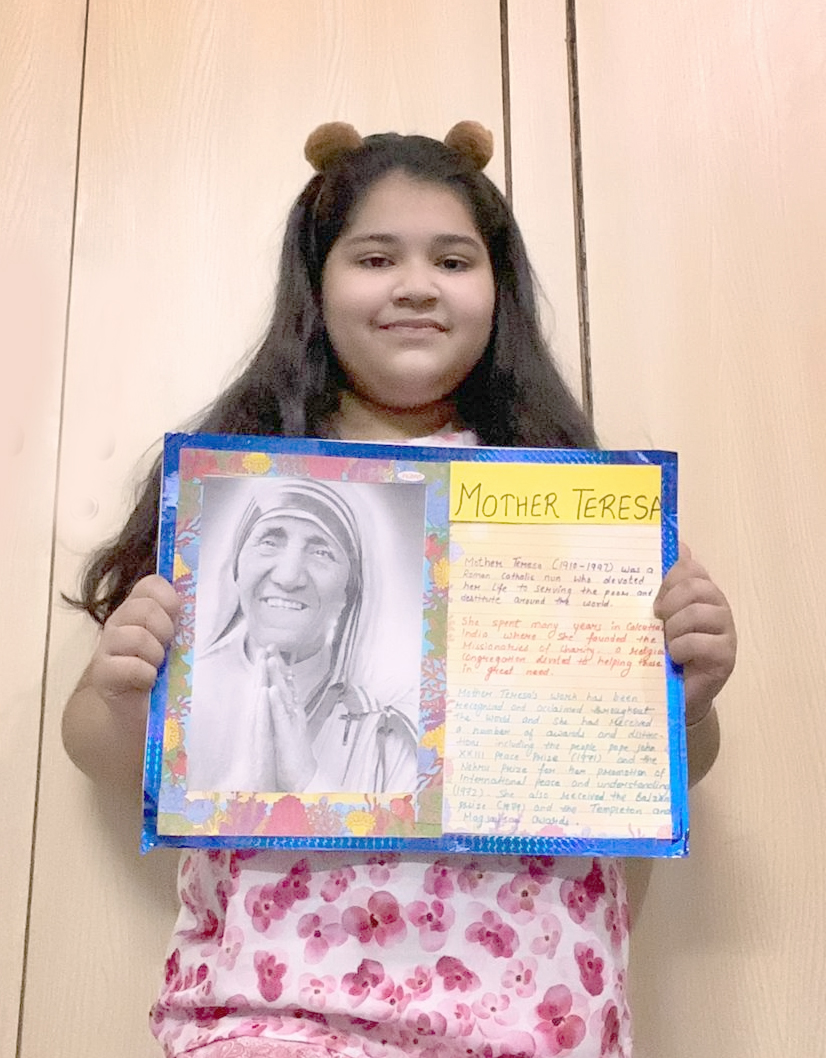 MOTHER TERESA
Mother Teresa (1910-1997) was a
Roman Catholic nun who devoted
her life to serving the poor and
destitute around the world.
She spent many years in Calcutta
India where she founded the
Missionaries of Charity. a religio
congregation devoted to helping those
in great need.
Mother Teresa's work has been
recognised and acclaimed throughout
the world and she has received
a number of awards and distinc-
tions including the people pope john
XXIII Peace Prize (1971) and the
Nehru Prize for her promotion of
International peace and understanding
(1972) She also received the
Prize (1979) and the Templeton and
Magsaysay awards.